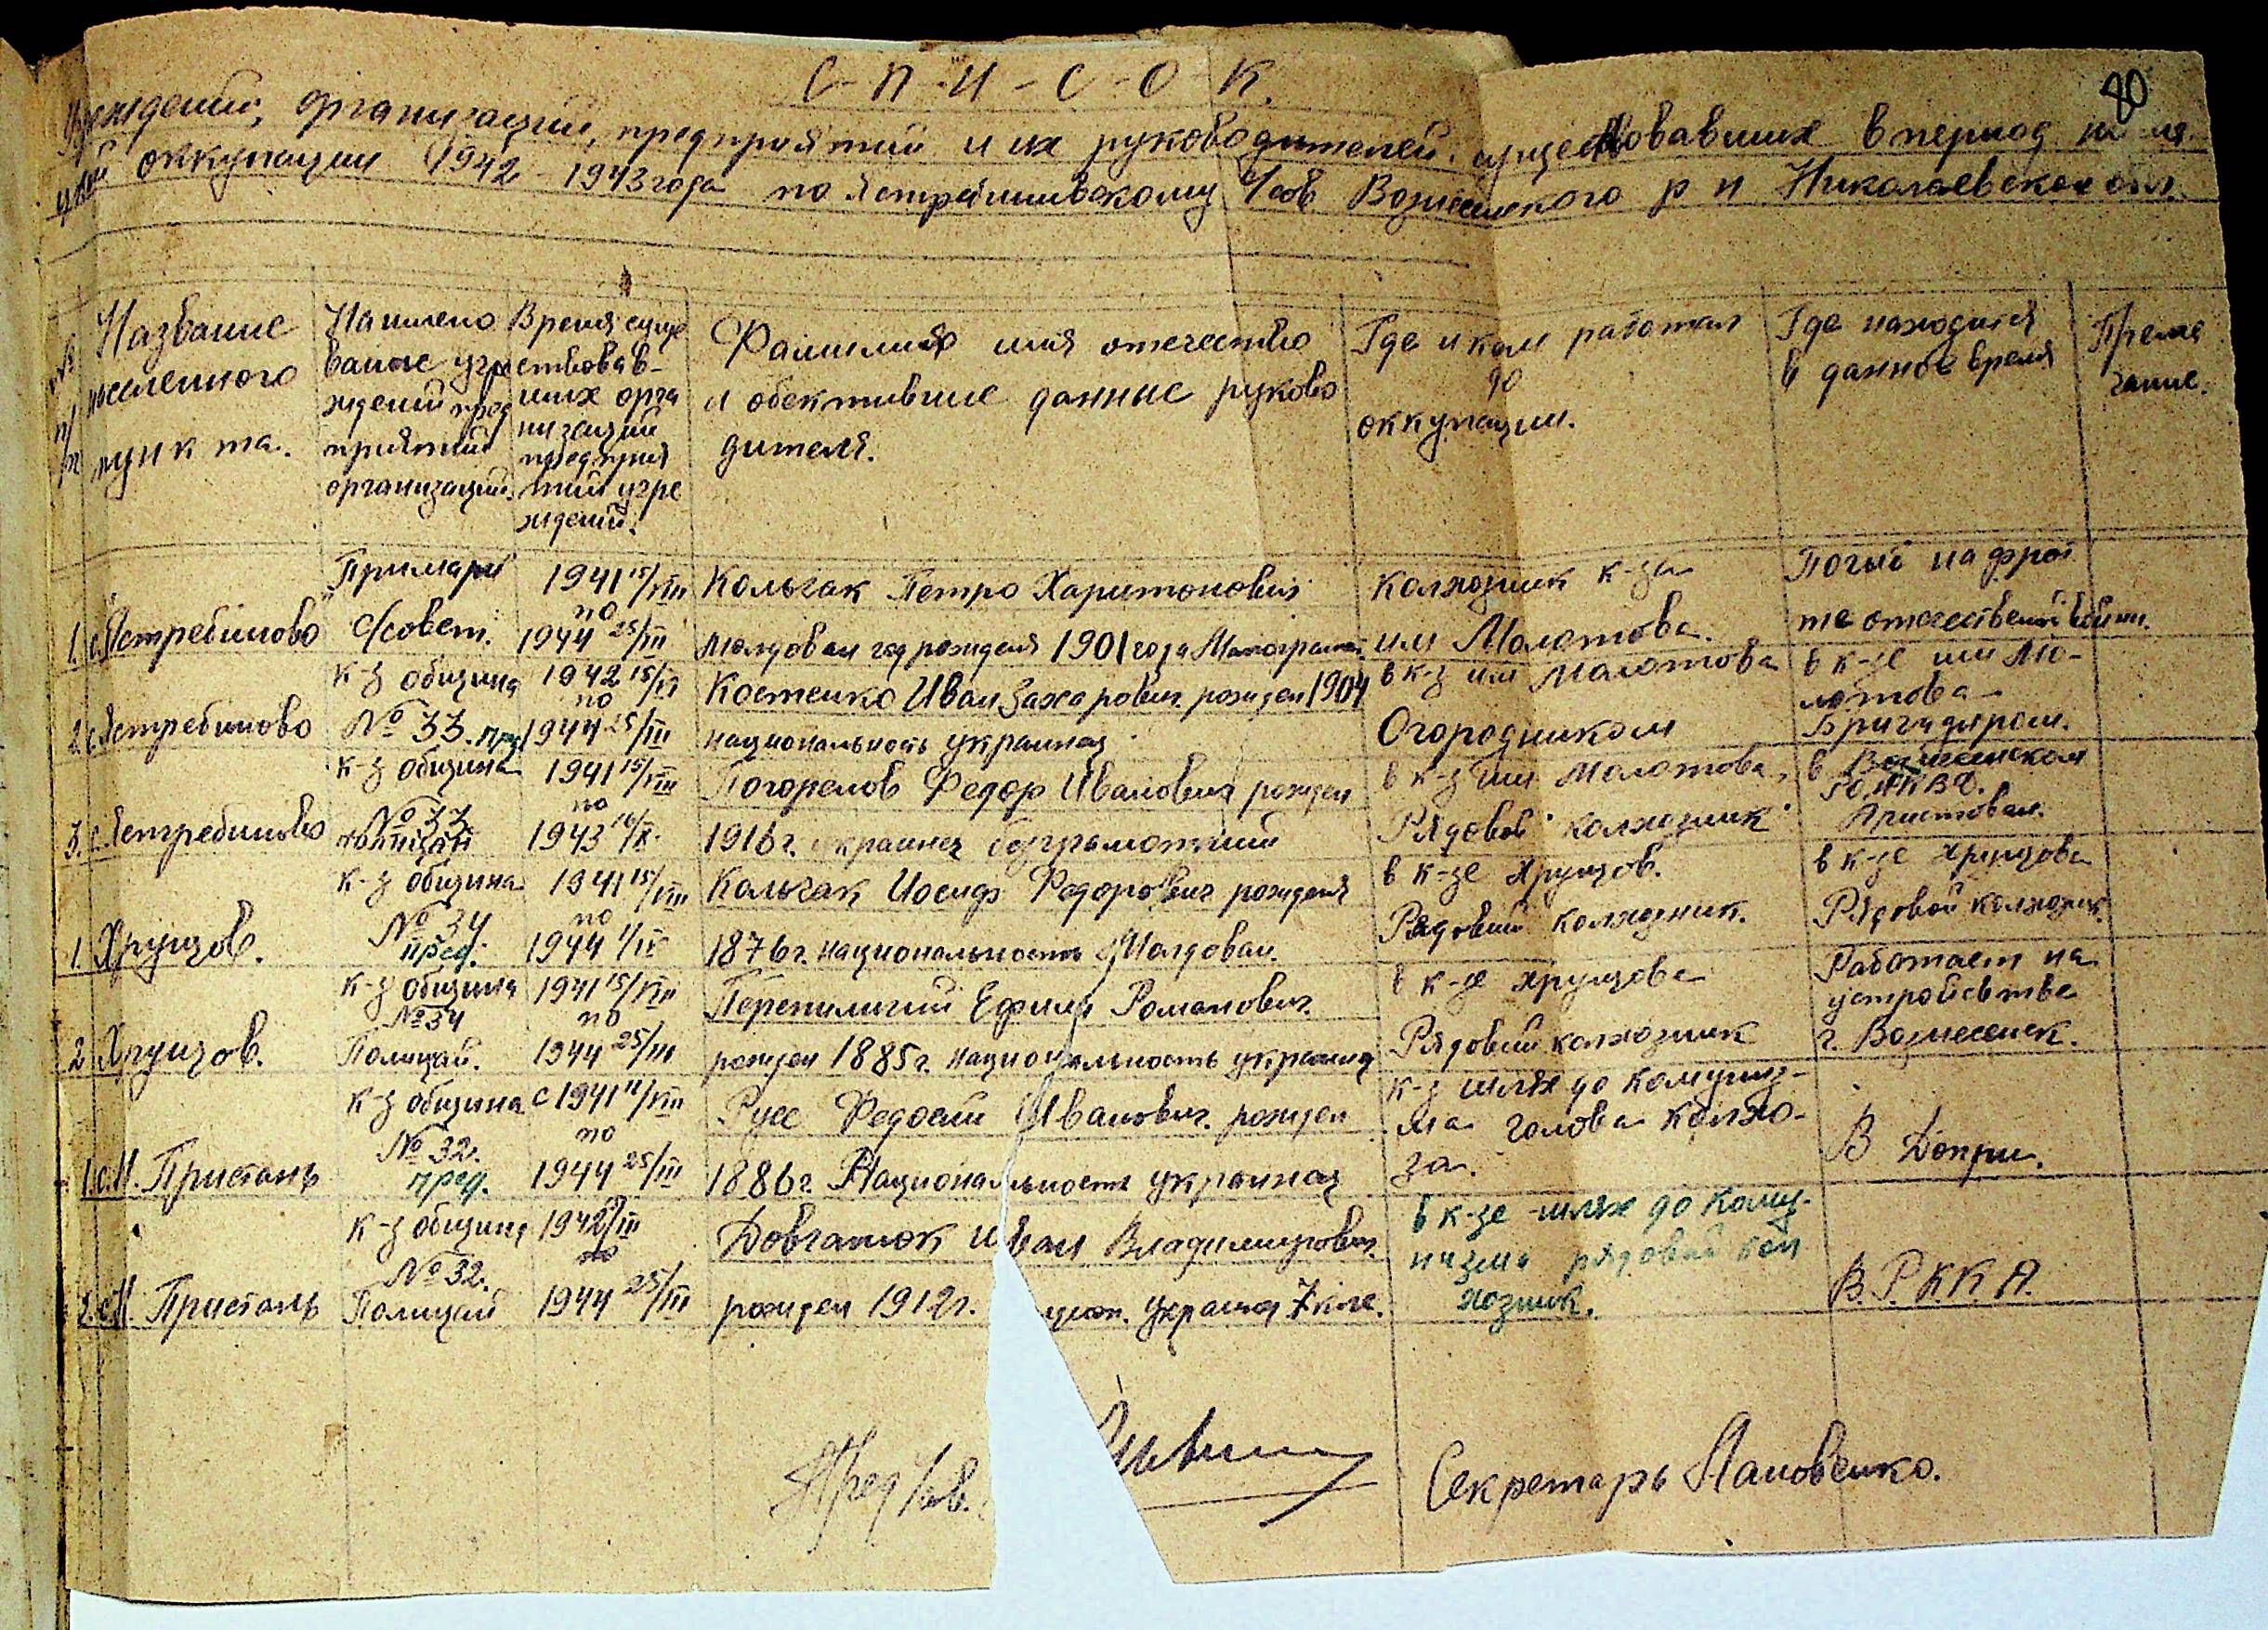 80
С-П-И-С-О-К.
Учреждений, организаций, предприятий и их руководителей. существовавших в период
оккупации 1942 - 1943 года по Вознесенского р н Николаевской обл.
№ п/п
Название
населенного
пункта.
Наимено
вание учре
ждений пред
приятий
организаций.
Время суще
ствовав-
ших орга
низаций
предприя
тий учре
ждений.
Фамилия имя отечество
и обективние данние руково
дителя.
Где и кем работал
до
оккупации.
Где находится
в данное время
Приме
чание.
1. с. Ястребиново
Примари
с/совет.
1941 15/VIII
по
1944 25/III
Кольчак Петро Харитонович
молдован год рождения 1901 года
Колхозник к-за
им Молотова.
Погиб на фрон
те отечественой войни.
2. с. Ястребиново
к-з община
№ 33. пред
1942 15/VI
по
1944 25/III
Костенко Иван Захарович рожден 1904
национальность украинец
в к-з им Молотова
Огородником
в к-зе им Мо-
лотова
Бригадиром.
3. с. Ястребиново
к-з община
№ 33
полицай
1941 15/VIII
по
1943 16/X.
Погорелов Федор Иванович рожден
1916 г. украинец безграмотний
в к-з им Молотова,
Рядовой колхозник
в Вознесенском
РО НКВД.
Аристован.
1. Хрущов.
к-з община
№ 34
пред.
1941 15/VIII
по
1944 1/IV
Кольчак Иосиф Федорович рождения
1876 г. национальность Молдован.
в к-зе Хрущов.
Рядовий колхозник.
в к-зе Хрущова
Рядовой колхозник.
2. Хрущов.
к-з община
№ 34
Полицай.
1941 15/VIII
по
1944 25/III
Перепиличий Ефим Романович.
рожден 1885 г. национальность украинец
в к-зе Хрущова
Рядовий колхозник
Работает на
устройстве
г. Вознесенск.
1. с. Н. Пристань
к-з община
№ 32.
пред.
с 1941 11/VIII
по
1944 25/III
Русс Федосий Иванович. рожден
1886 г. Национальность украинец
к-з шлях до комуниз-
ма голова колхо-
за.
В Допри.
2. с. Н. Пристань
к-з община
№ 32.
Полицай
1942 /III
по
1944 25/III
Довганюк Иван Владимирович.
рожден 1912 г. цион. украинец 7 кле.
в к-зе шлях до кому-
низма рядовий кол
хозник.
В. Р.К.К.А.
Пред с/сов.
Секретарь Яновенко.